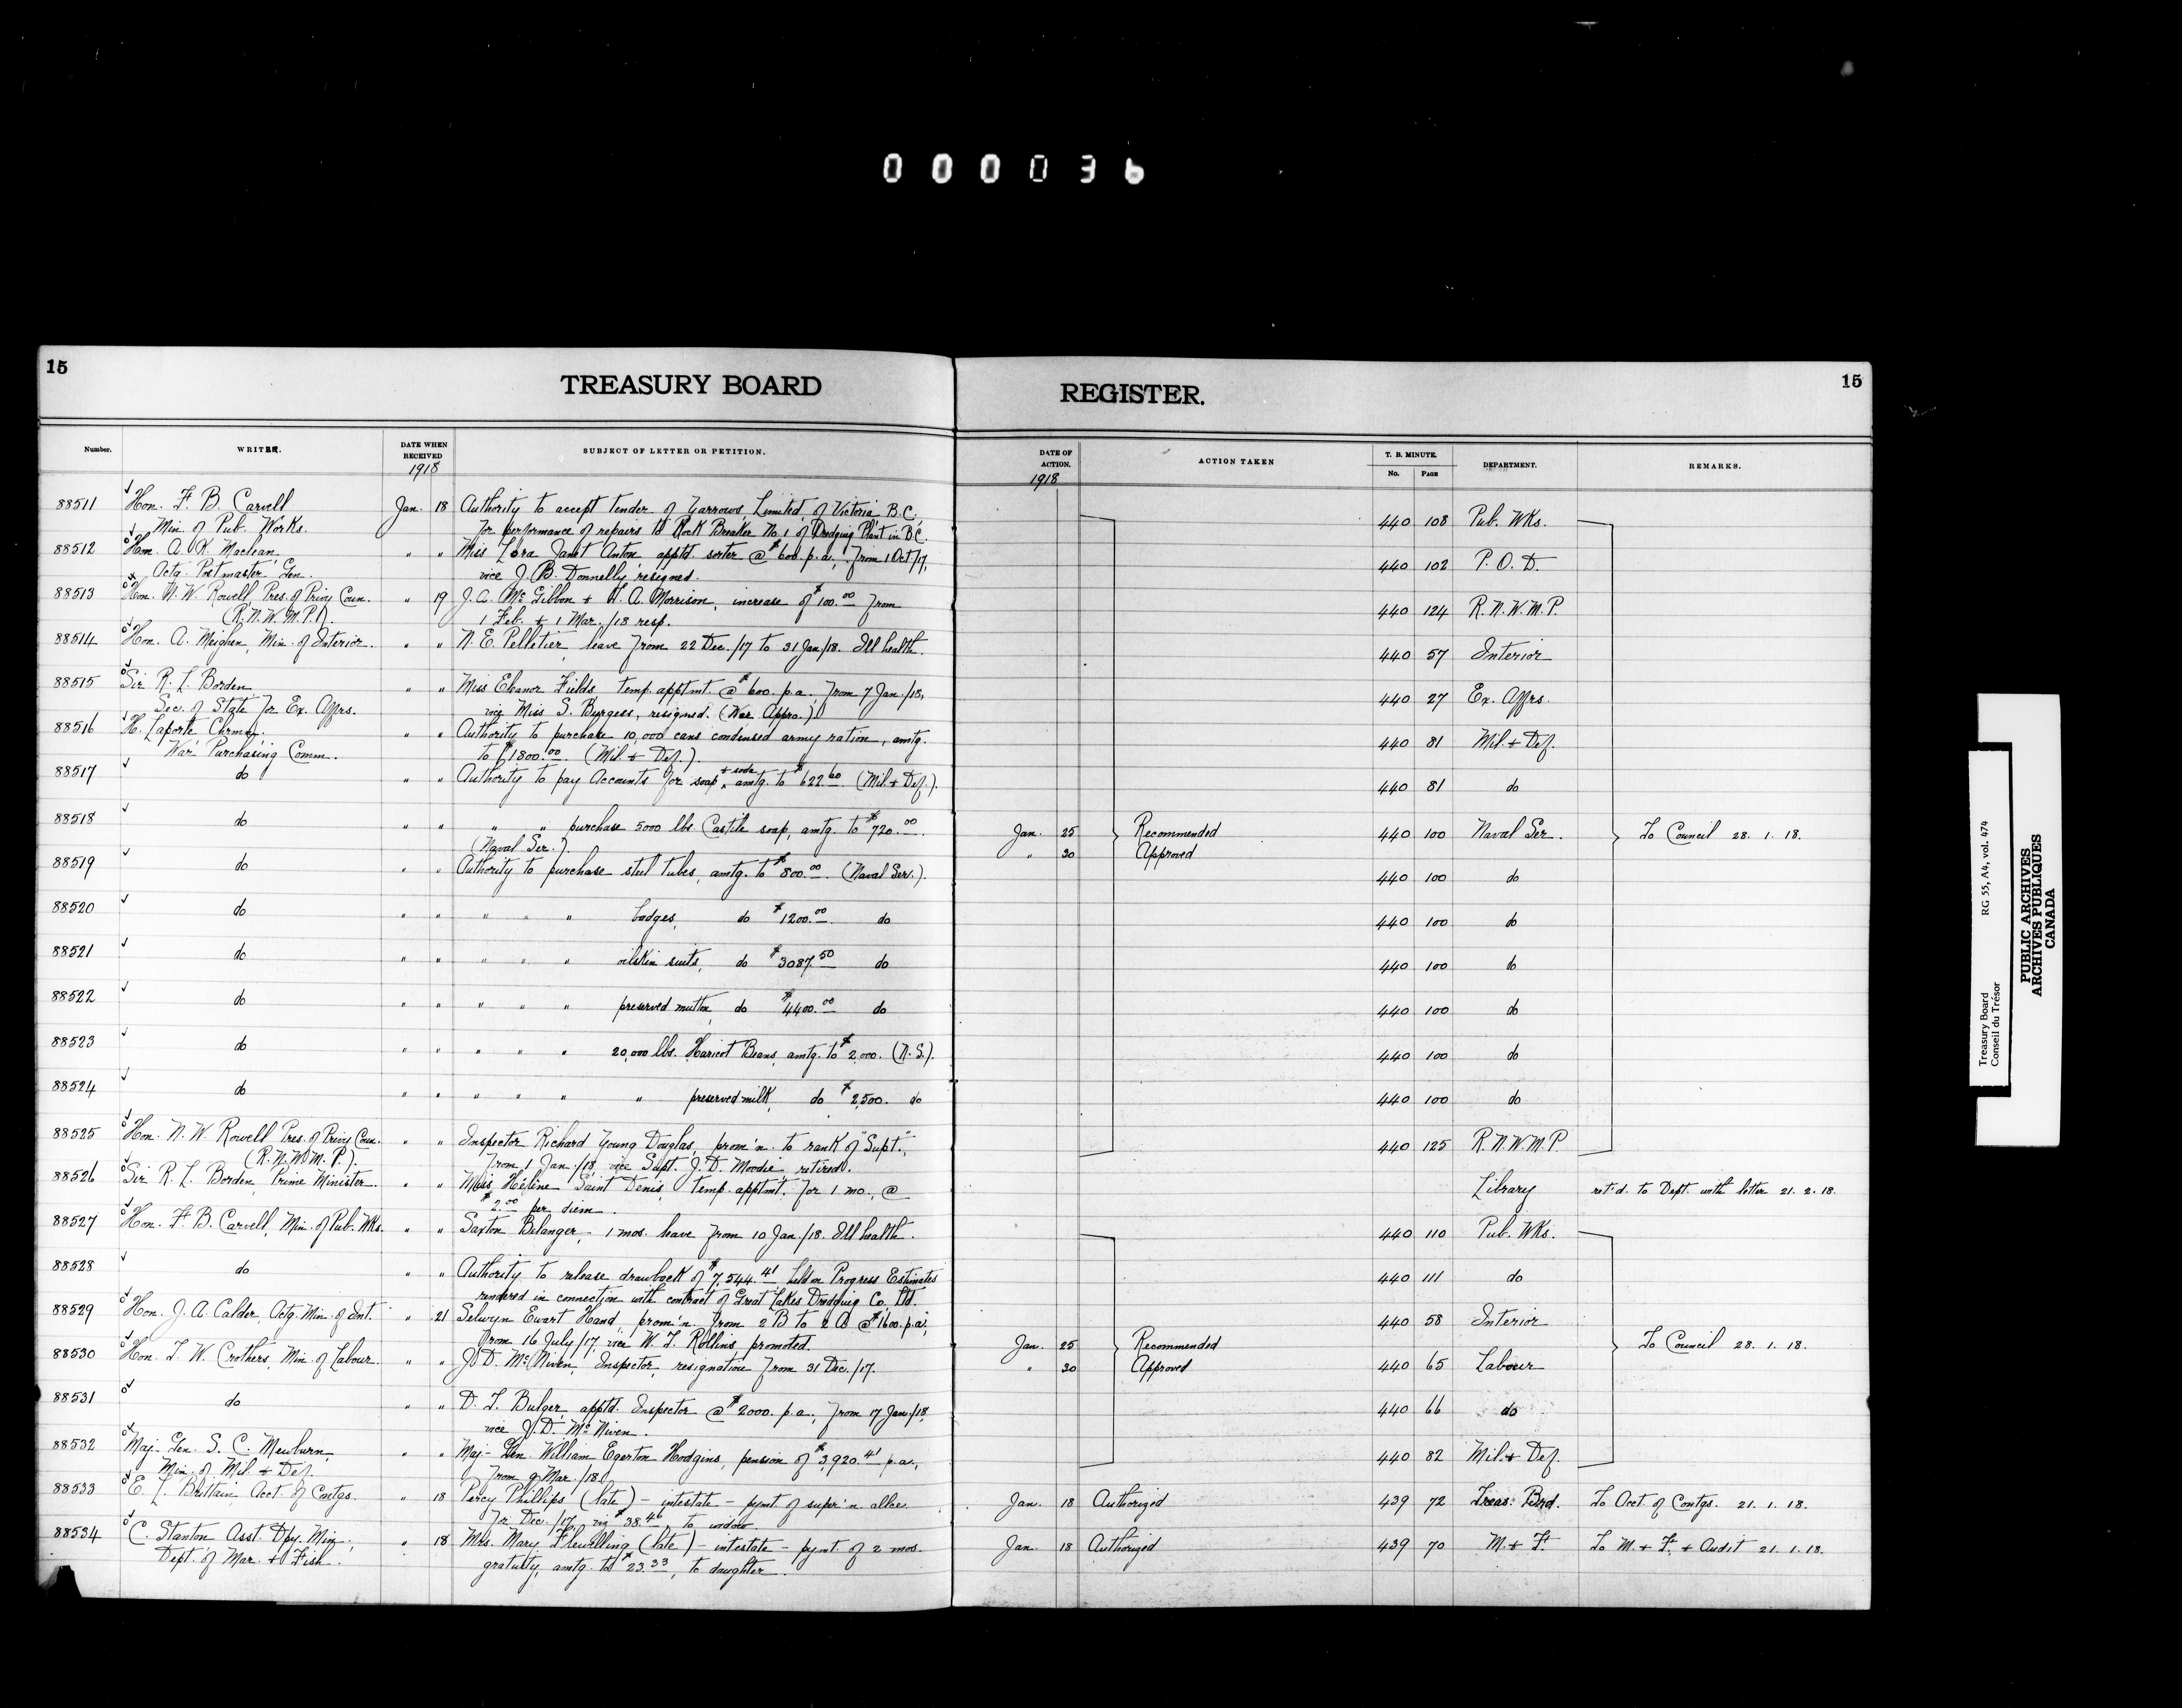 000036
15
TREASURY BOARD REGISTER.
15
Number.
WRITER.
DATE WHEN RECEIVED
1918
SUBJECT OF LETTER OR PETITION.
DATE OF ACTION.
1918
ACTION TAKEN
T. B. MINUTE.
No. PAGE
DEPARTMENT.
REMARKS.
88511 Hon. F. B. Carvell Jan. 18 Authority to accept tender of Yarrows, Limited, of Victoria B.C. 440 108 Pub. Wks.
Min. of Pub. Works. for performance of repairs to Rock Breaker No 1 of Dredging Plant in B.C.
88512 Hon. A. K. Maclean " " Miss Lora Janet Anton apptd. sorter @ $600. p.a., from 1 Oct/17, 440 102 P. O. D.
Actg. Postmaster Gen. vice J. B. Donnelly resigned.
88513 Hon. N. W. Rowell Pres. of Privy Coun. " 19 J. A. McGibbon + H. A. Morrison, increase of $100.00 from 440 124 R. N. W. M. P.
(R. N. W. M. P.). 1 Feb. + 1 Mar./18 resp.
88514 Hon. A. Meighen, Min. of Interior. " " N. E. Pelletier, leave from 22 Dec./17 to 31 Jan/18. Ill health. 440 57 Interior
88515 Sir R. L. Borden " " Miss Eleanor Fields temp. apptmt. @ $600. p.a. from 7 Jan./18, 440 27 Ex. Affrs.
Sec. of State for Ex. Affrs. vice Miss S. Burgess, resigned. (War Appro.)
88516 H. Laporte Chrmn. " " Authority to purchase 10,000 cans condensed army ration, amtg. 440 81 Mil. + Def.
War Purchasing Comm. to $1800.00. (Mil. + Def.).
88517 do " " Authority to pay Accounts for soap + soda amtg. to $622.60. (Mil. + Def.). 440 81 do
88518 do " " " " purchase 5000 lbs. Castile soap, amtg. to $720.00. Jan. 25 Recommended 440 100 Naval Ser. To Council 28. 1. 18.
(Naval Ser.) " 30 Approved
88519 do " " Authority to purchase steel tubes, amtg. to $800.00. (Naval Ser.). 440 100 do
88520 do " " " " " badges, do $1200.00 do 440 100 do
88521 do " " " " " oilskin suits, do $3087.50 do 440 100 do
88522 do " " " " " preserved mutton, do $4400.00 do 440 100 do
88523 do " " " " " 20,000 lbs. Haricot Beans, amtg. to $2,000. (N. S.). 440 100 do
88524 do " " " " " " preserved milk, do $2,500. do 440 100 do
88525 Hon. N. W. Rowell Pres. of Privy Coun. " " Inspector Richard Young Douglas, prom'n. to rank of "Supt.", 440 125 R. N. W. M. P.
(R. N. W. M. P.). from 1 Jan./18, vice Supt. J. D. Moodie retired.
88526 Sir R. L. Borden, Prime Minister. " " Miss Héline Saint Denis, temp. apptmt. for 1 mo., @ Library ret'd. to Dept. with letter 21. 2. 18.
$2.00 per diem.
88527 Hon. F. B. Carvell, Min. of Pub. Wks. " " Saxton Belanger, - 1 mos. leave from 10 Jan./18. Ill health. 440 110 Pub. Wks.
88528 do " " Authority to release drawback of $7,544.41 held on Progress Estimates 440 111 do
rendered in connection with contract of Great Lakes Dredging Co. Ltd.
88529 Hon. J. A. Calder, Actg. Min. of Int. " 21 Selwyn Ewart Hand, prom'n. from 2 B to 2 A @ $1600. p.a., 440 58 Interior
from 16 July/17, vice W. J. Rollins, promoted. Jan. 25 Recommended To Council 28. 1. 18.
88530 Hon. T. W. Crothers, Min. of Labour. " " J. D. McNiven, Inspector, resignation from 31 Dec./17. " 30 Approved 440 65 Labour
88531 do " " D. T. Bulger, apptd. Inspector @ $2000. p.a., from 17 Jan./18, 440 66 do
vice J. D. McNiven.
88532 Maj-Gen. S. C. Mewburn, " " Maj-Gen William Egerton Hodgins, pension of $3,920.41 p.a., 440 82 Mil. + Def.
Min. of Mil. + Def. from 9 Mar./18.
88533 E. L. Brittain Acct. of Contgs. " 18 Percy Phillips (late) - intestate - pymt of super'n. allce. Jan. 18 Authorized 439 72 Treas: Brd. To Acct. of Contgs. 21. 1. 18.
for Dec./17, viz $38.46, to widow
88534 C. Stanton Asst. Dpy. Min., " 18 Mrs. Mary Flewelling (late) - intestate - pymt. of 2 mos. Jan. 18 Authorized 439 70 M. + F. To M. + F. + Audit 21. 1. 18.
Dept. of Mar. + Fish. gratuity, amtg. to $23.33, to daughter.
Treasury Board RG 55, A4, vol. 474
Conseil du Trésor
PUBLIC ARCHIVES
ARCHIVES PUBLIQUES
CANADA